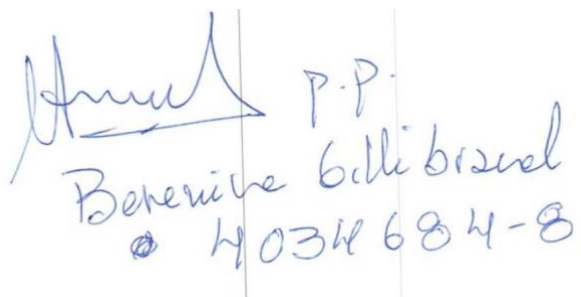 p.p.
Berenice Gillibrand
4034684-8